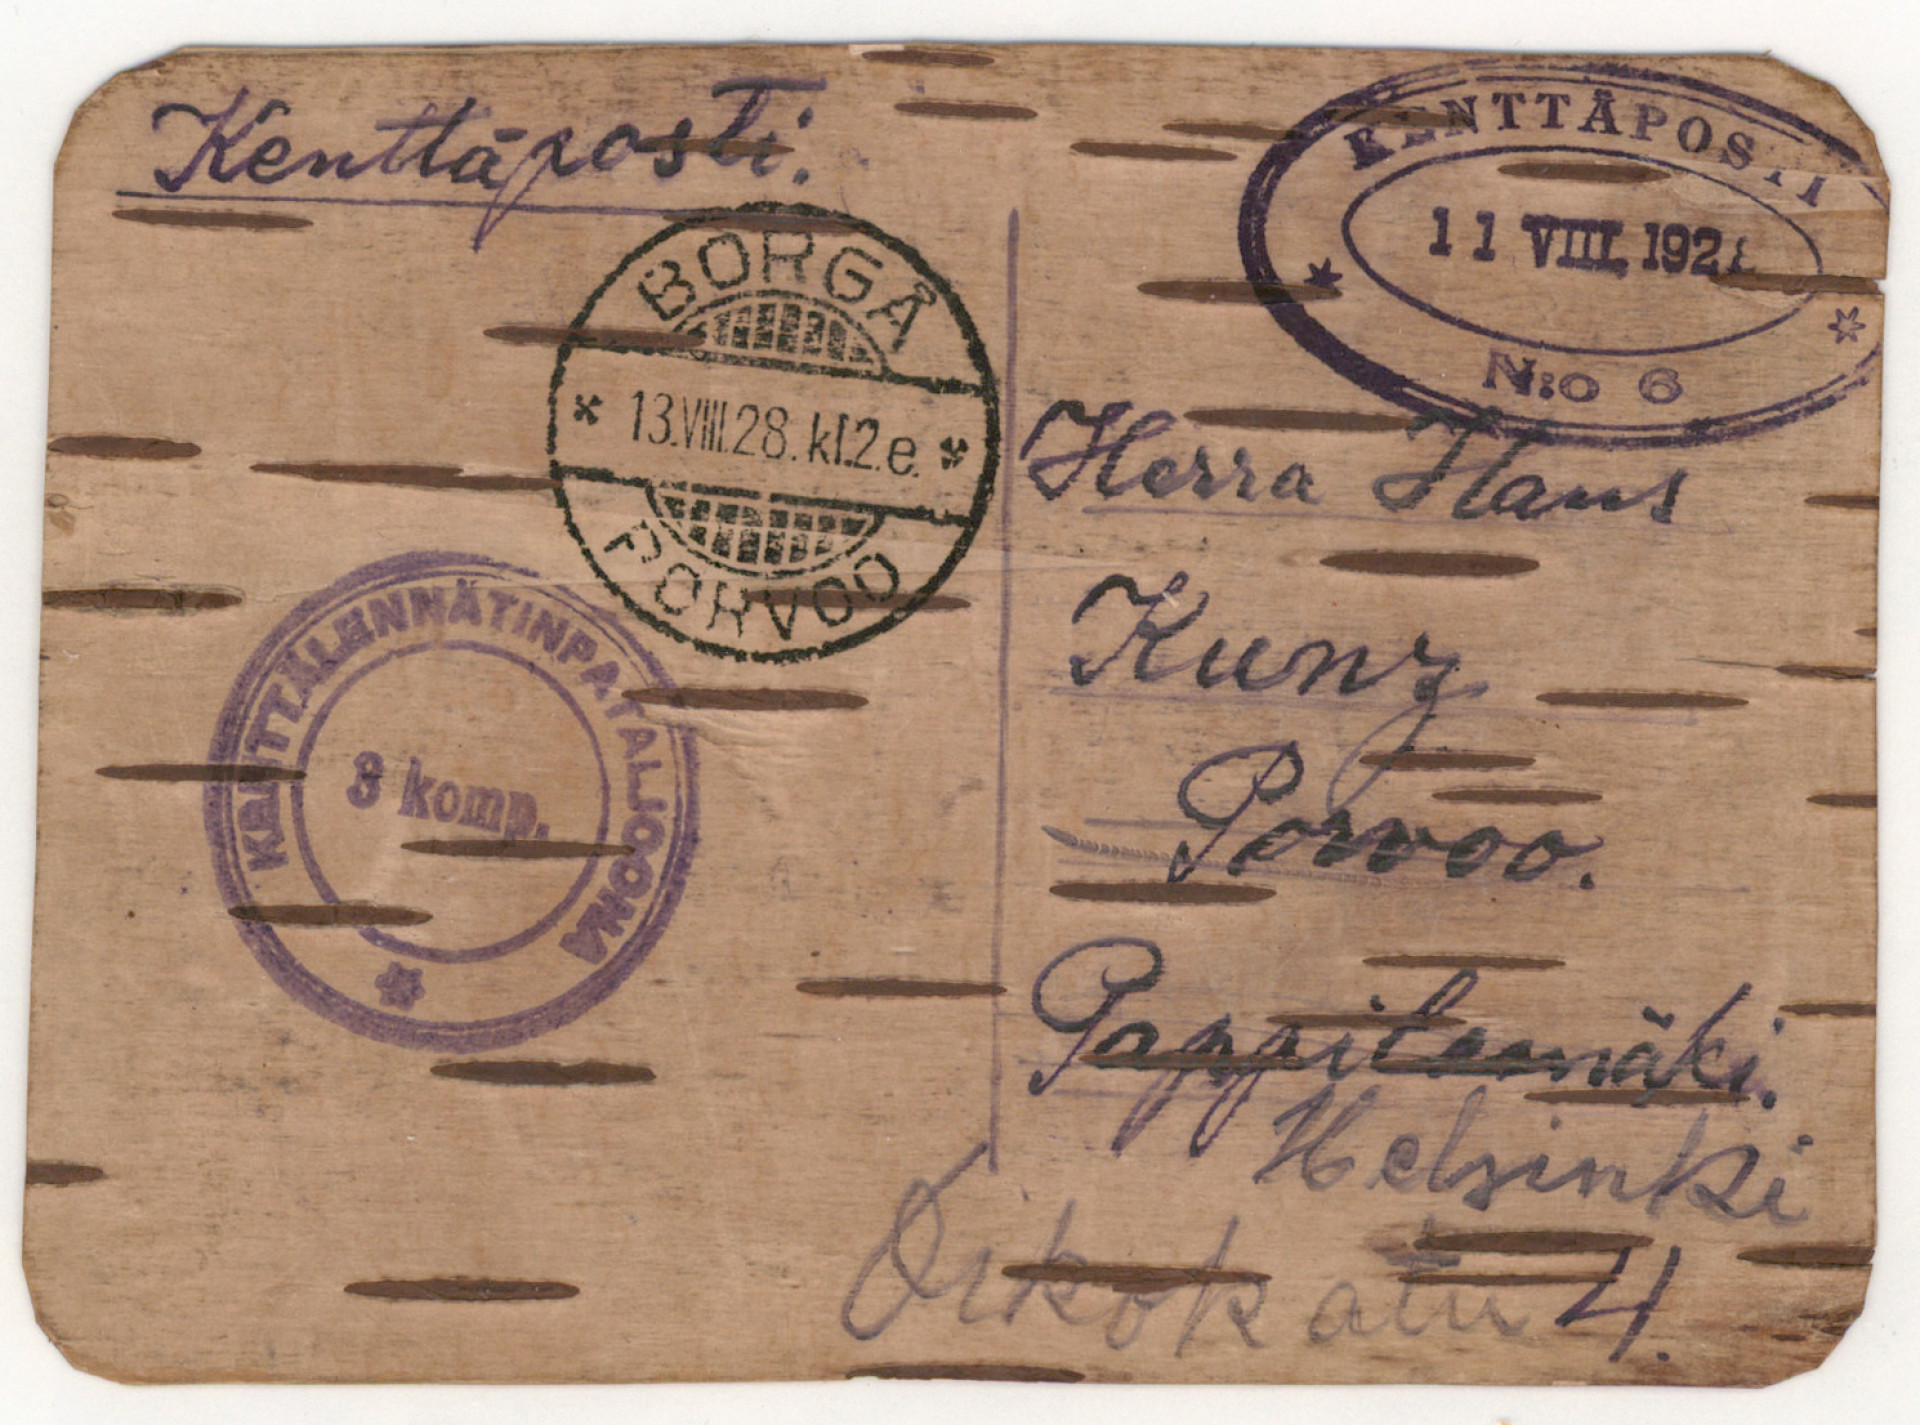 Kenttäposti.
KENTTÄPOSTI
11 VIII. 192
N:o 6
BORGÅ
13.VIII.28.kl.2.e.
PORVOO
Herra Hans
Kunz
Porvoo.
KENTTÄLENNÄTINPATALJOONA
3 komp.
Helsinki
katu 4.